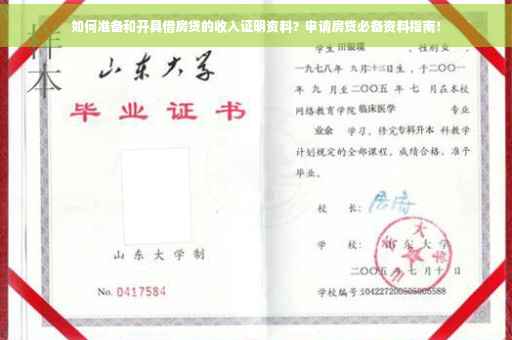 如何准备和开具借房贷的收入证明资料？申请房贷必备资料指南！
样本
山东大学
毕业证书
山东大学制
No. 0417584
学生 田银瑞 ，性别 女 ，
一九七八年 九月十三日生，于二〇〇一
年 九 月至二〇〇五 年 七 月在本校
网络教育学院 临床医学 专业
业余 学习，修完专科升本 科教学
计划规定的全部课程，成绩合格，准予
毕业。
校 长：
学 校： 山东大学
二〇〇五 年 七 月 十 日
学校编号:104227200505005588